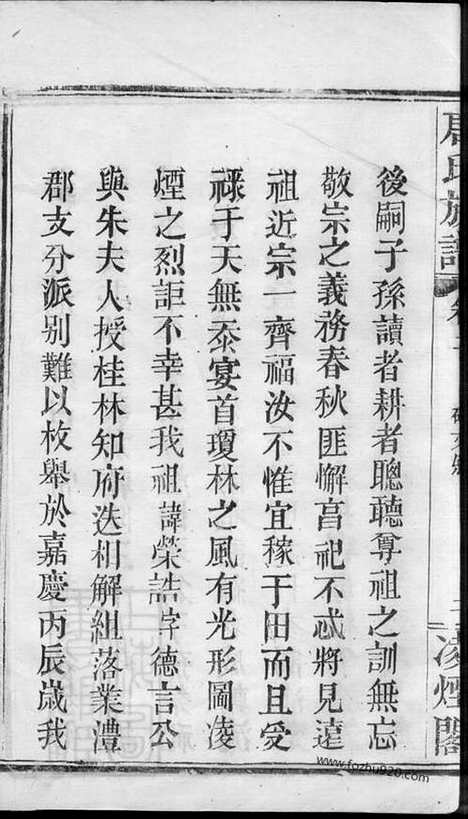 後嗣子孫讀者耕者聰聽尊祖之訓無忘
敬宗之義務春秋匪懈亯祀不忒將見遠
祖近宗一齊福汝不惟宜稼于田而且受
祿于天無忝宴首瓊林之風有光形圖凌
煙之烈詎不幸甚我祖諱榮誥字德言公
與朱夫人授桂林知府迭相解組落業澧
郡支分派别難以枚舉於嘉慶丙辰歲我
氏族譜
凌煙閣
www.fozhu920.com